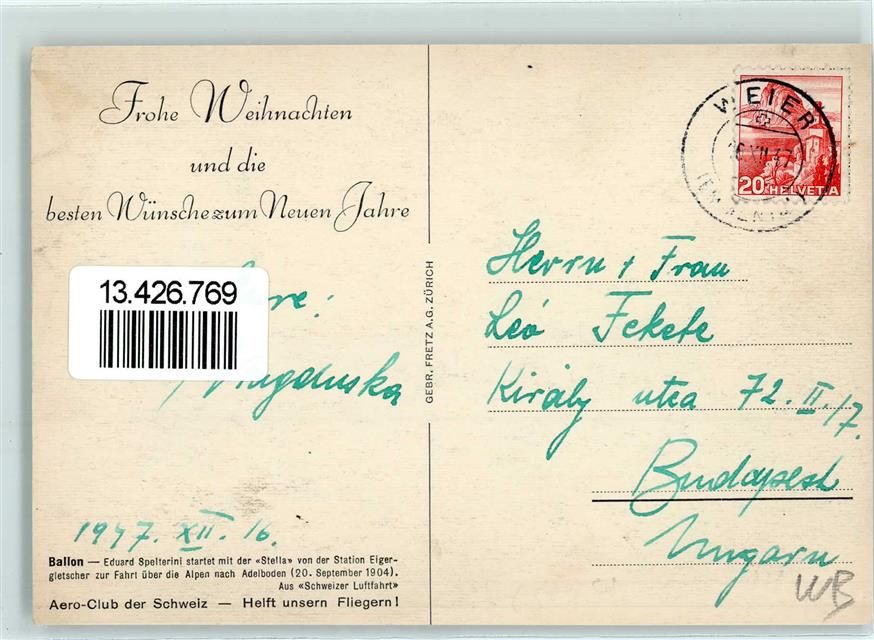 Frohe Weihnachten
und die
besten Wünsche zum Neuen Jahre
13.426.769
Magduska
1947. XII. 16.
Ballon — Eduard Spelterini startet mit der «Stella» von der Station Eiger-
gletscher zur Fahrt über die Alpen nach Adelboden (20. September 1904).
Aus «Schweizer Luftfahrt»
Aero-Club der Schweiz — Helft unsern Fliegern!
GEBR. FRETZ A.G. ZÜRICH
WEIER
16 XII 47
20 HELVETIA
Herrn + Frau
Léó Fekete
Király utca 72. II. 17.
Budapest
Ungarn
WB